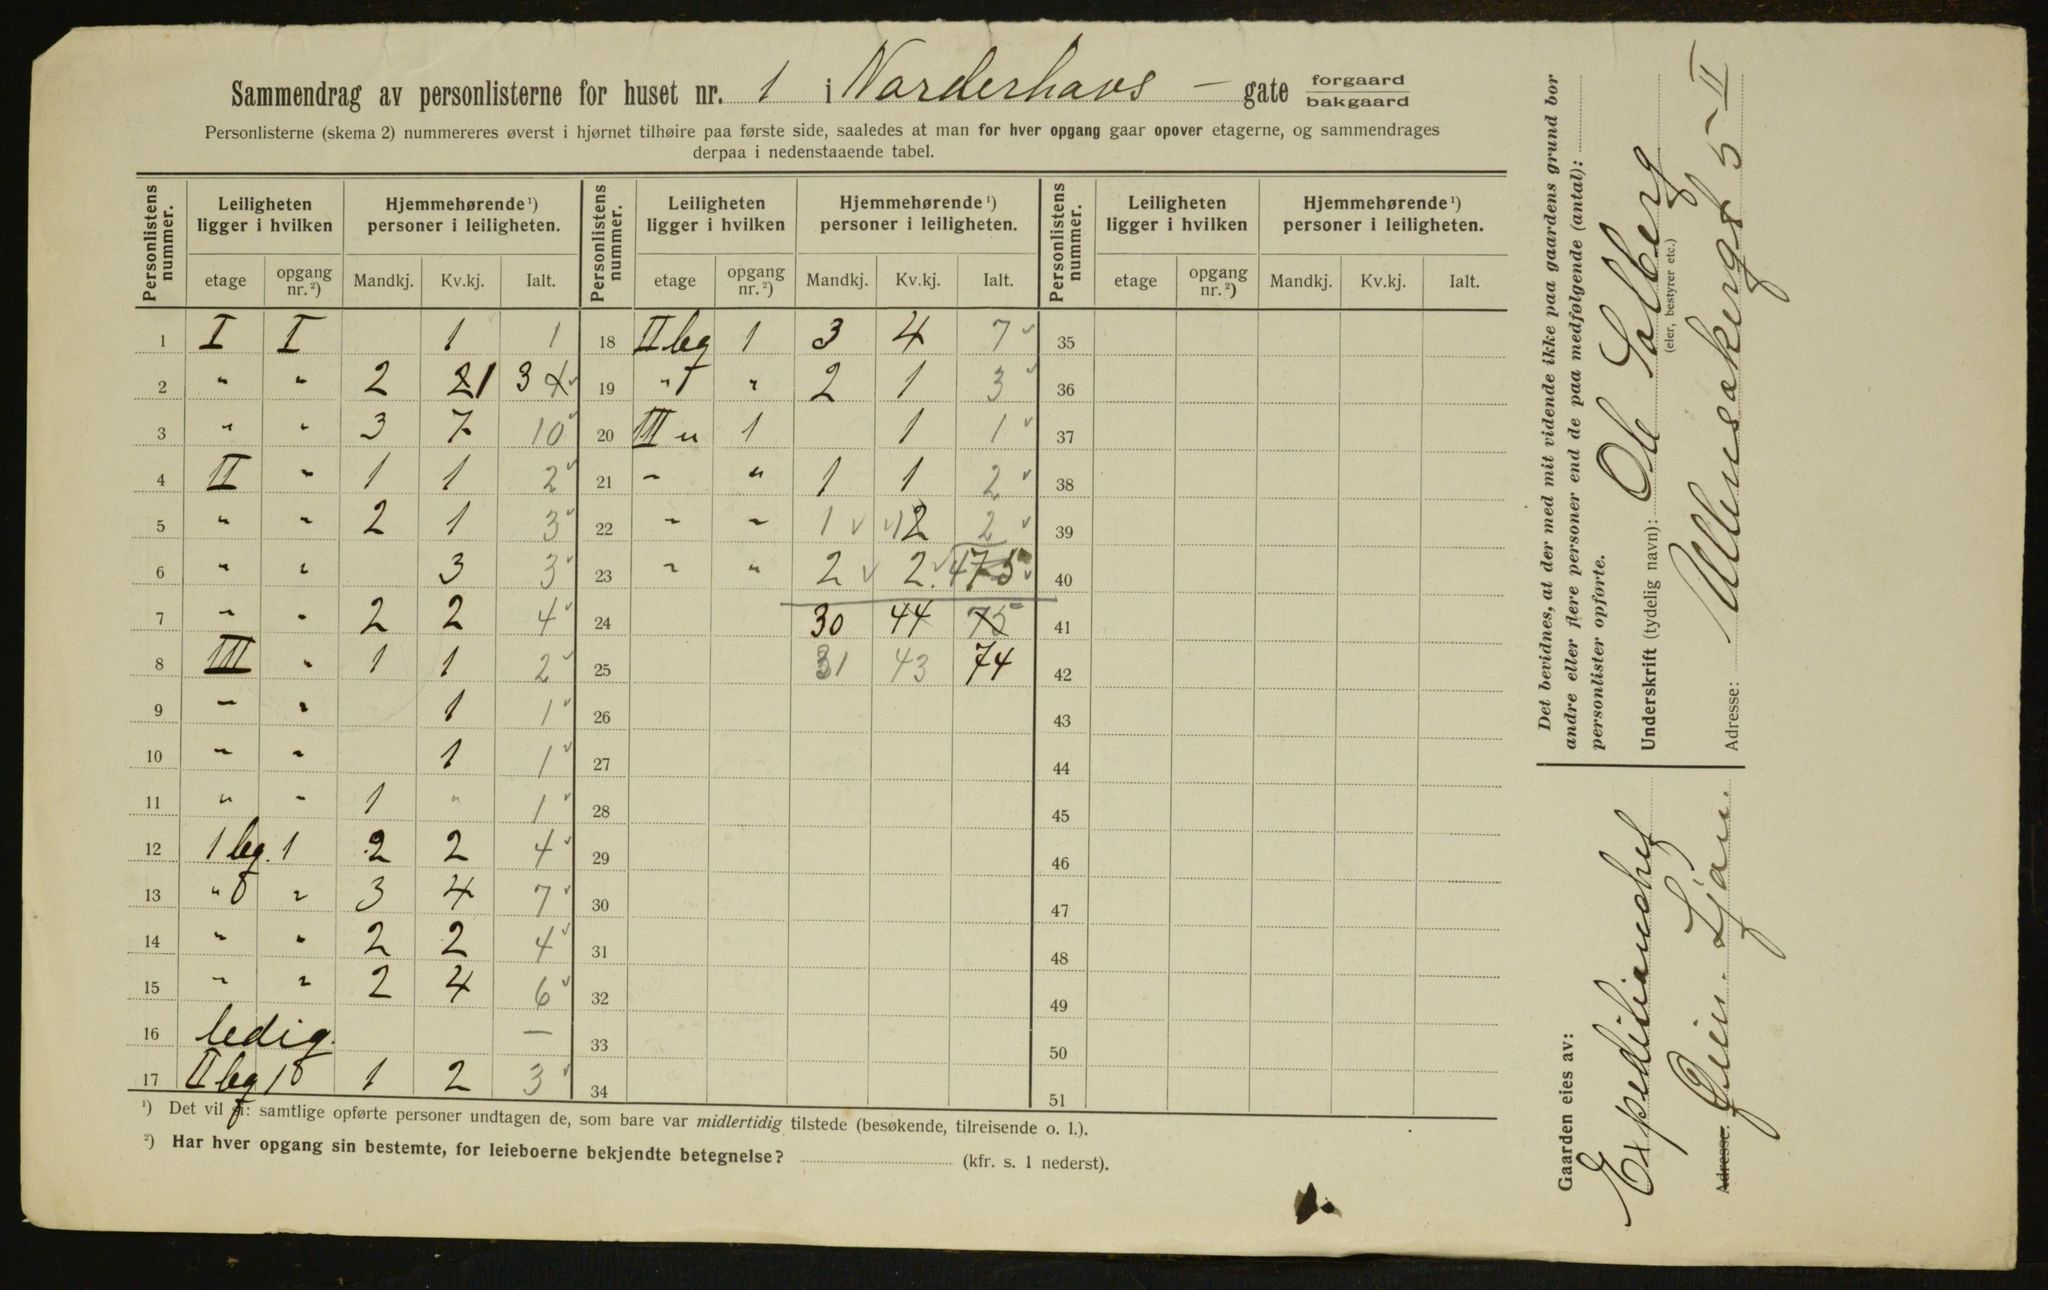 Sammendrag av personlisterne for huset nr. 1 i Norderhovs – gate forgaard bakgaard
Personlisterne (skema 2) nummereres øverst i hjørnet tilhøire paa første side, saaledes at man for hver opgang gaar opover etagerne, og sammendrages
derpaa i nedenstaaende tabel.
Personlistens nummer. | Leiligheten ligger i hvilken | Hjemmehørende ¹) personer i leiligheten. | Personlistens nummer. | Leiligheten ligger i hvilken | Hjemmehørende ¹) personer i leiligheten. | Personlistens nummer. | Leiligheten ligger i hvilken | Hjemmehørende ¹) personer i leiligheten.
etage | opgang nr. ²) | Mandkj. | Kv.kj. | Ialt. | etage | opgang nr. ²) | Mandkj. | Kv.kj. | Ialt. | etage | opgang nr. ²) | Mandkj. | Kv.kj. | Ialt.
1 I I 1 1 18 II bg 1 3 4 7 35
2 " " 2 2 1 3 4 19 " " 2 1 3 36
3 " " 3 7 10 20 III " 1 1 1 37
4 II " 1 1 2 21 " " 1 1 2 38
5 " " 2 1 3 22 " " 1 1 2 2 39
6 " " 3 3 23 " " 2 2 4 75 40
7 " " 2 2 4 24 30 44 75 41
8 III " 1 1 2 25 31 43 74 42
9 " " 1 1 26 43
10 " " 1 1 27 44
11 " " 1 " 1 28 45
12 1 bg. 1 2 2 4 29 46
13 " " 3 4 7 30 47
14 " " 2 2 4 31 48
15 " " 2 4 6 32 49
16 ledig. — 33 50
17 II bg 1 1 2 3 34 51
¹) Det vil si: samtlige opførte personer undtagen de, som bare var midlertidig tilstede (besøkende, tilreisende o. l.).
²) Har hver opgang sin bestemte, for leieboerne bekjendte betegnelse? (kfr. s. 1 nederst).
Det bevidnes, at der med mit vidende ikke paa gaardens grund bor
andre eller flere personer end de paa medfølgende (antal):
personlister opførte.
Underskrift (tydelig navn): Ole Solberg
(eier, bestyrer etc.)
Adresse: Ullensakergt 5 II
Gaarden eies av:
Expeditionschef
Adresse. Gien. Ljan.